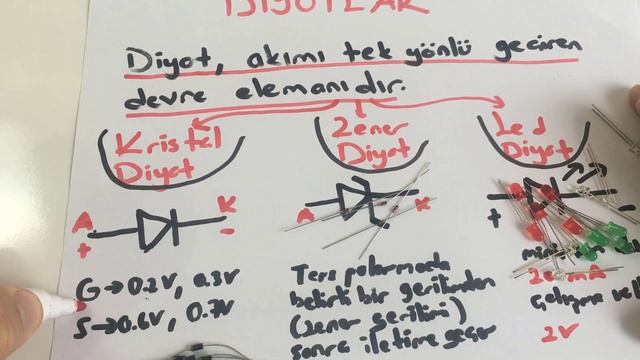 DİYOTLAR
Diyot, akımı tek yönlü geçiren
devre elemanıdır.
Kristal
Diyot
Zener
Diyot
Led
Diyot
A
K
+
-
A
K
+
G→0.2V, 0.3V
S→0.6V, 0.7V
Ters polarmada
belirli bir gerilimden
(zener gerilimi)
sonra iletime geçer
20mA
Çalışma
2V